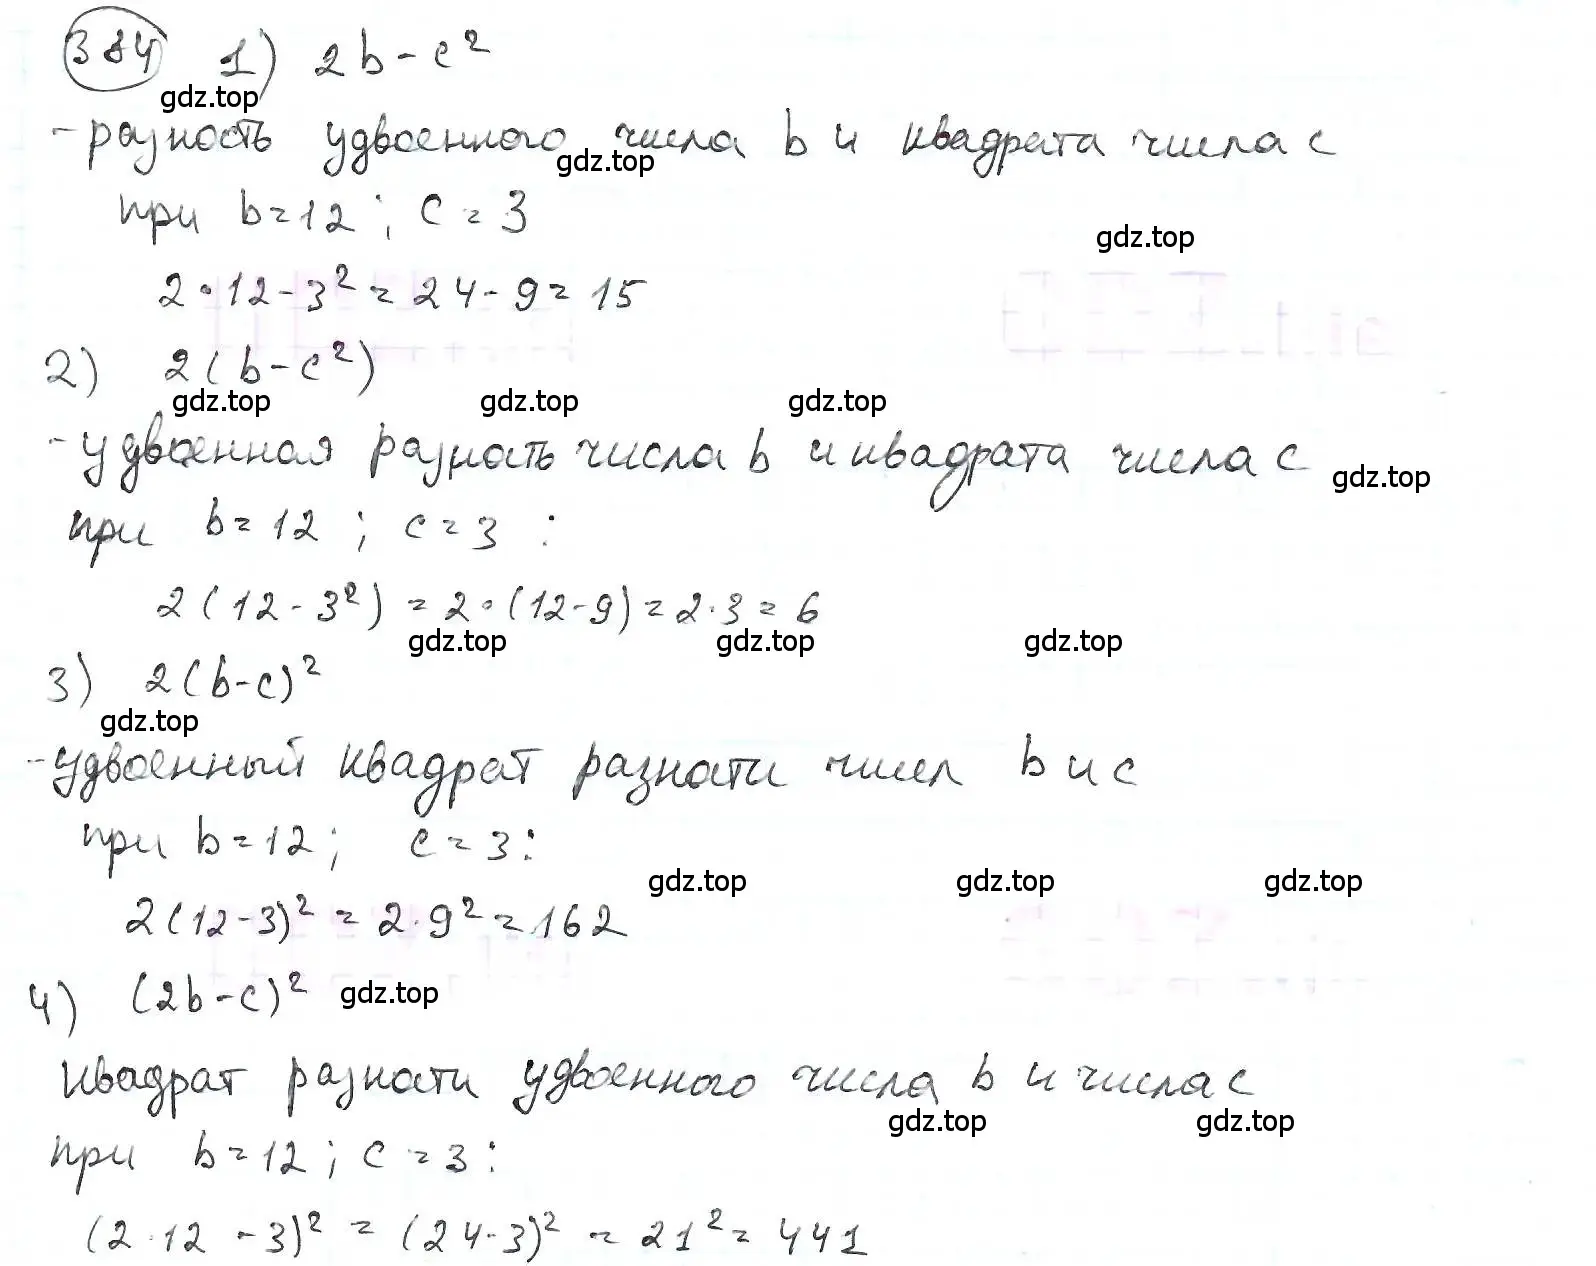 384 1) 2b - c²
gdz.top
- разность удвоенного числа b и квадрата числа c
gdz.top
при b = 12 ; c = 3
gdz.top
2 · 12 - 3² = 24 - 9 = 15
2) 2(b - c²)
gdz.top gdz.top gdz.top
- удвоенная разность числа b и квадрата числа c
gdz.top
при b = 12 ; c = 3 :
2(12 - 3²) = 2 · (12 - 9) = 2 · 3 = 6
gdz.top gdz.top gdz.top
3) 2(b - c)²
gdz.top
- удвоенный квадрат разности чисел b и c
при b = 12 ; c = 3 :
gdz.top gdz.top gdz.top
2(12 - 3)² = 2 · 9² = 162
4) (2b - c)² gdz.top
квадрат разности удвоенного числа b и числа c
gdz.top gdz.top
при b = 12 ; c = 3 :
(2 · 12 - 3)² = (24 - 3)² = 21² = 441